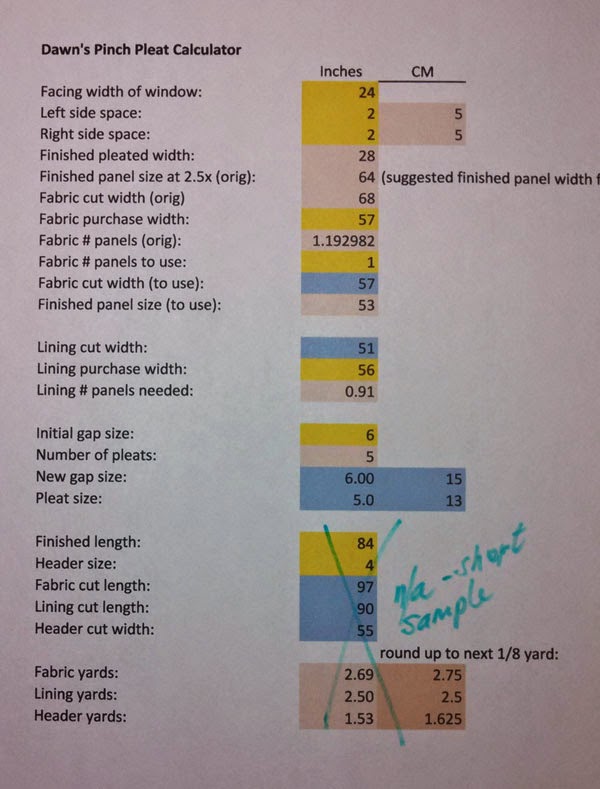 Dawn's Pinch Pleat Calculator
Inches CM
Facing width of window: 24
Left side space: 2 5
Right side space: 2 5
Finished pleated width: 28
Finished panel size at 2.5x (orig): 64 (suggested finished panel width f
Fabric cut width (orig) 68
Fabric purchase width: 57
Fabric # panels (orig): 1.192982
Fabric # panels to use: 1
Fabric cut width (to use): 57
Finished panel size (to use): 53
Lining cut width: 51
Lining purchase width: 56
Lining # panels needed: 0.91
Initial gap size: 6
Number of pleats: 5
New gap size: 6.00 15
Pleat size: 5.0 13
Finished length: 84
Header size: 4
Fabric cut length: 97
Lining cut length: 90
Header cut width: 55
n/a - short
sample
round up to next 1/8 yard:
Fabric yards: 2.69 2.75
Lining yards: 2.50 2.5
Header yards: 1.53 1.625